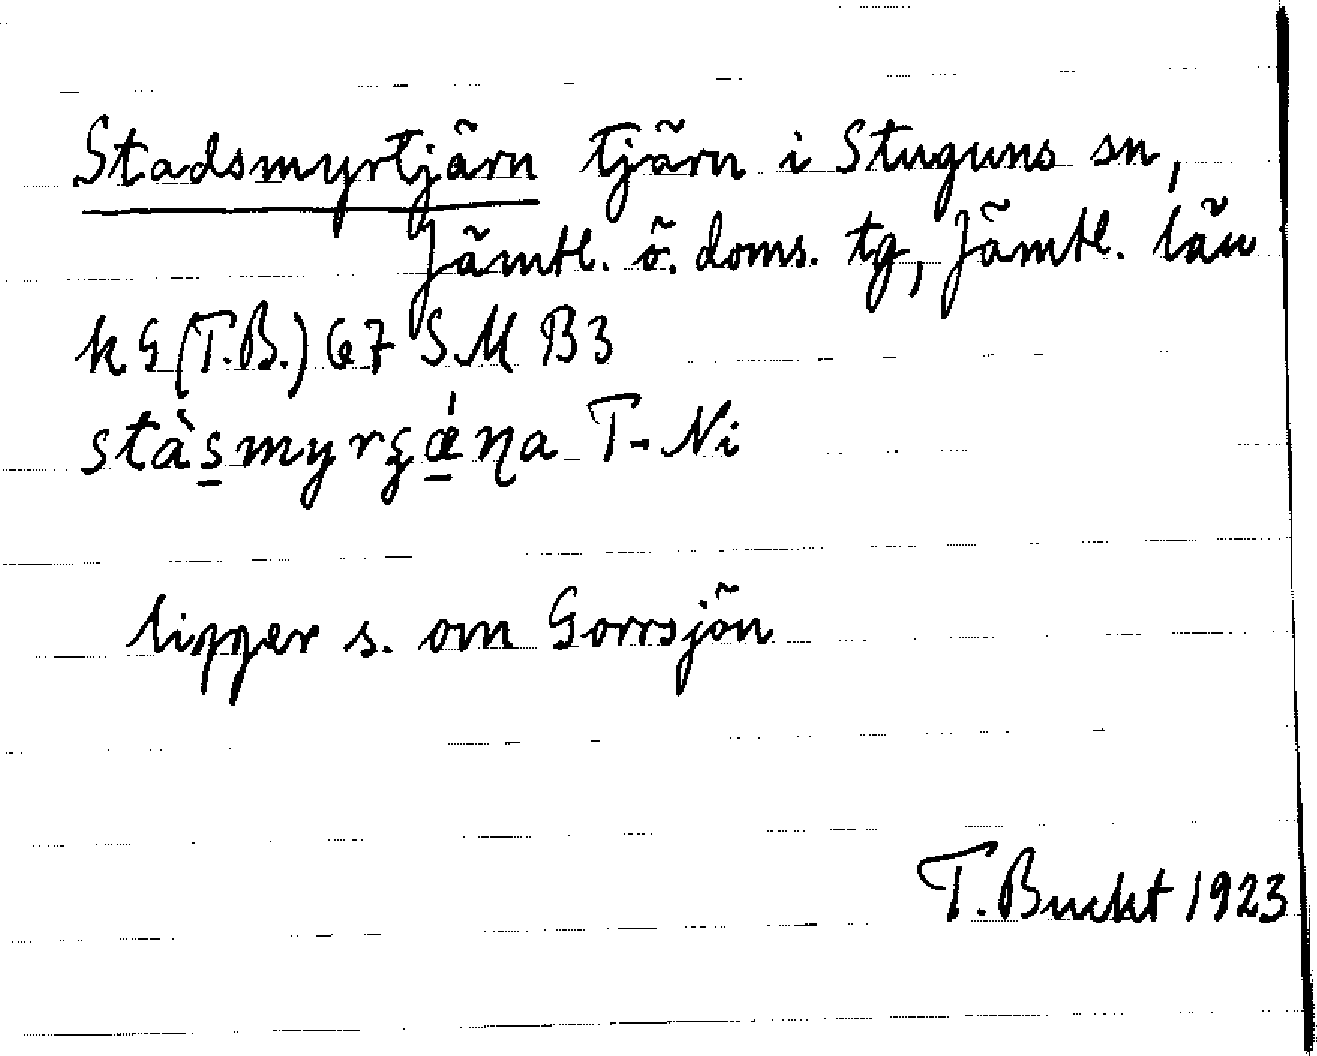 Stadsmyrtjärn tjärn i Stuguns sn,
Jämtl. ö. doms. tg, Jämtl. län
k G (T.B.) 67 S.M B3
T-Ni
ligger s. om Gorrsjön
T. Buckt 1923